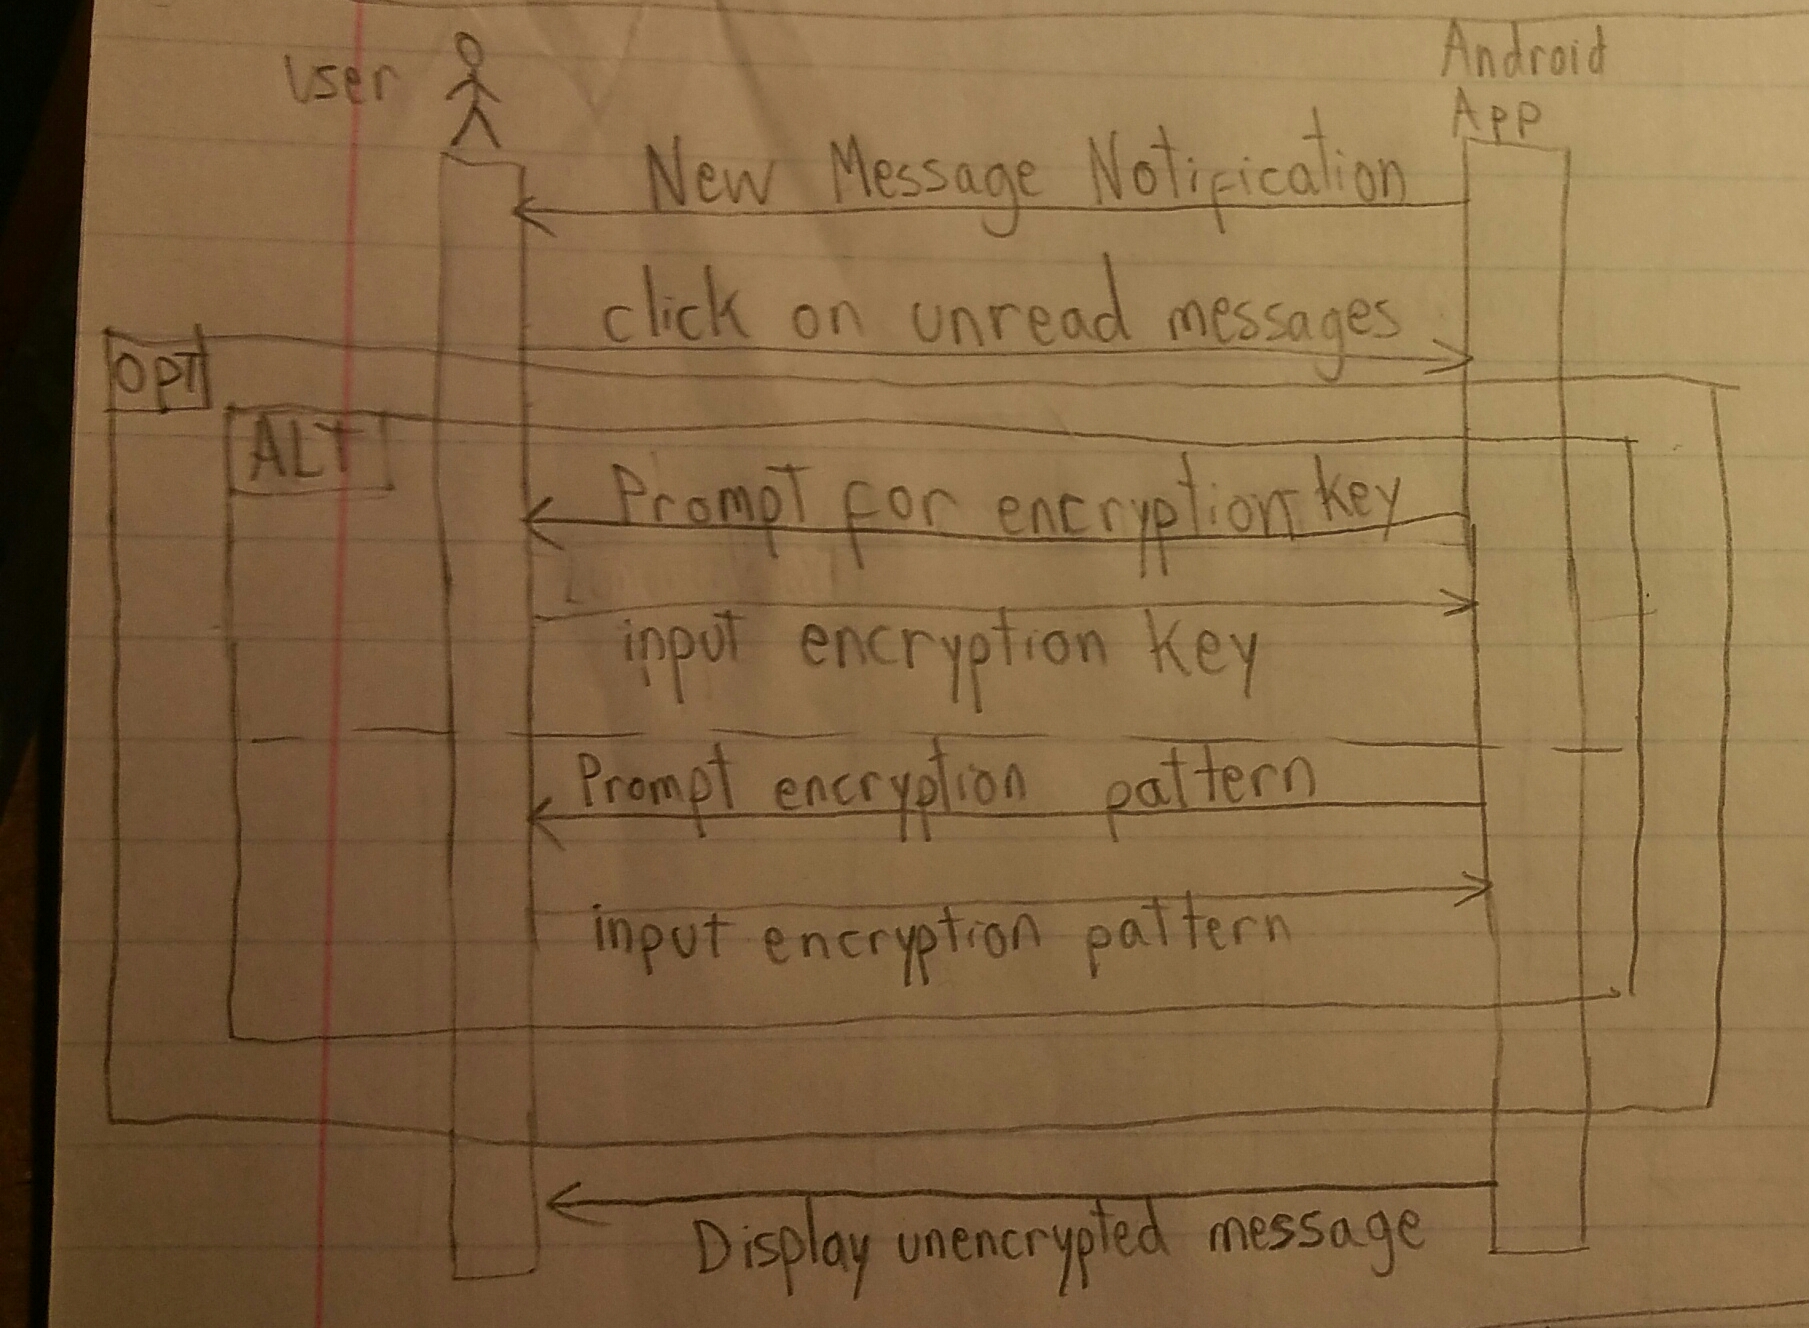 User
Android
App
New Message Notification
click on unread messages
OPT
ALT
Prompt for encryption key
input encryption key
Prompt encryption pattern
input encryption pattern
Display unencrypted message